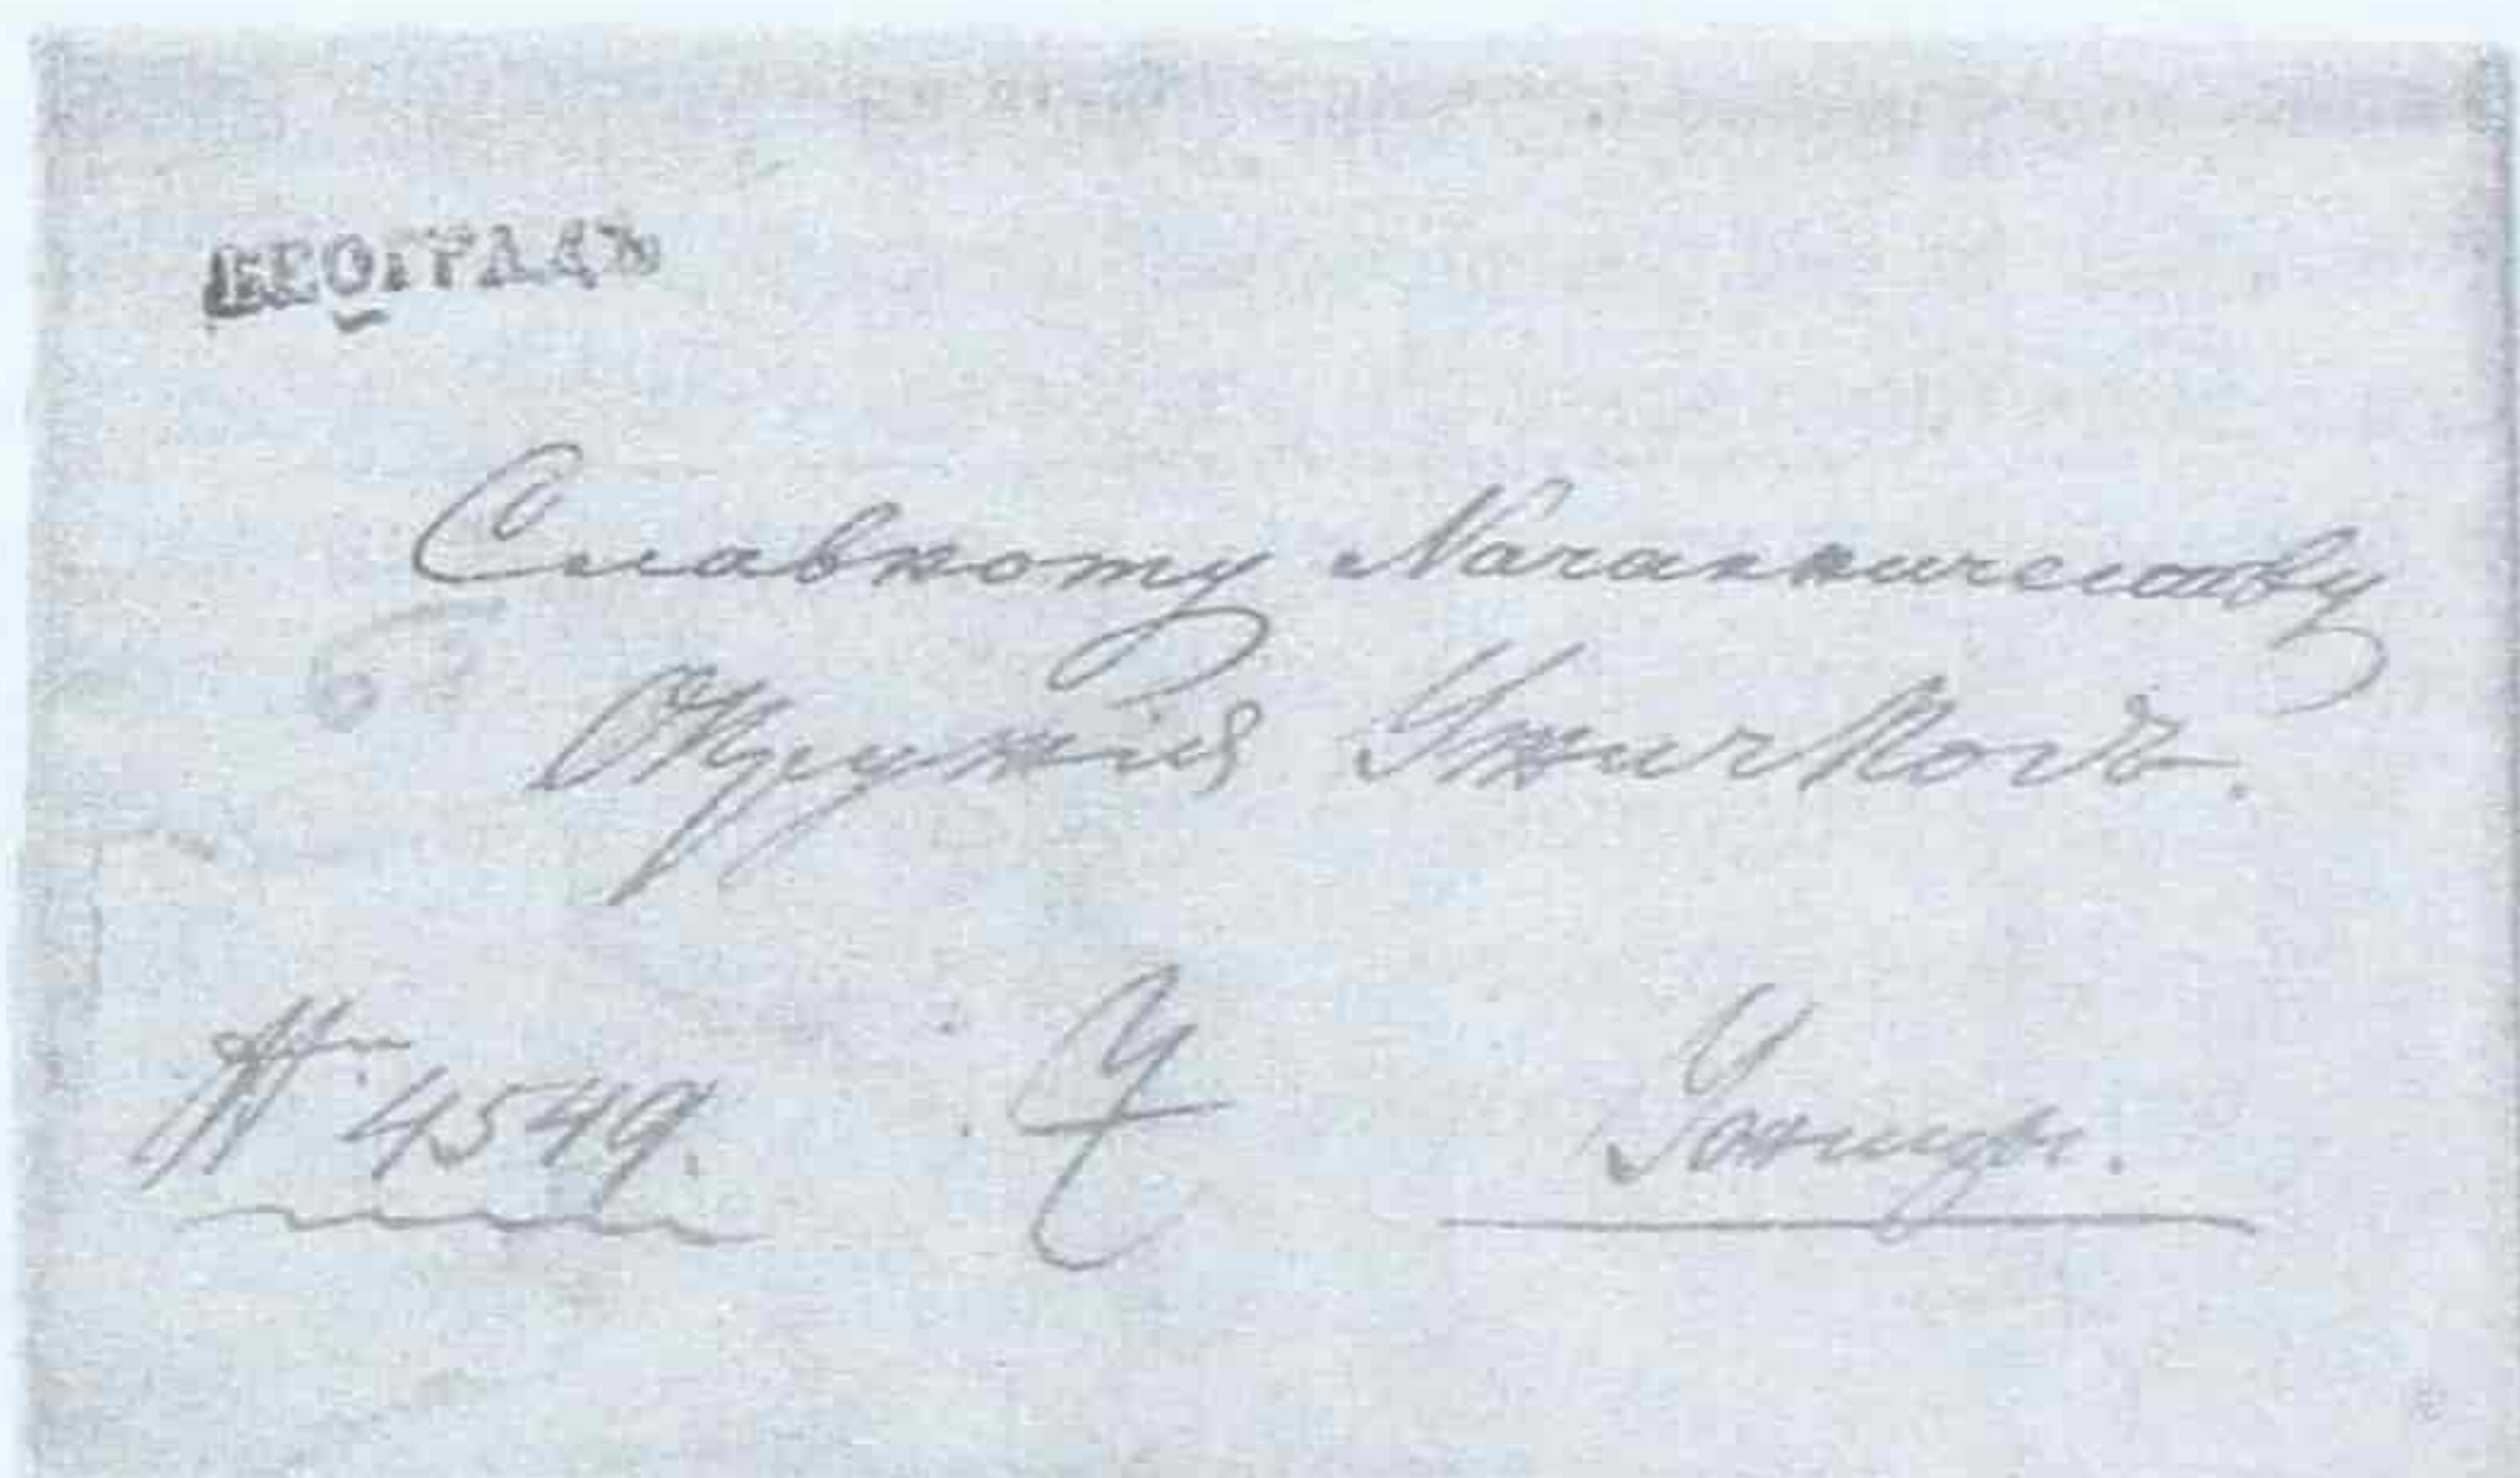 БЕОГРАДЪ
Славному Началничеству
Окружія Ужичкогъ.
№ 4549. У Ужицы.